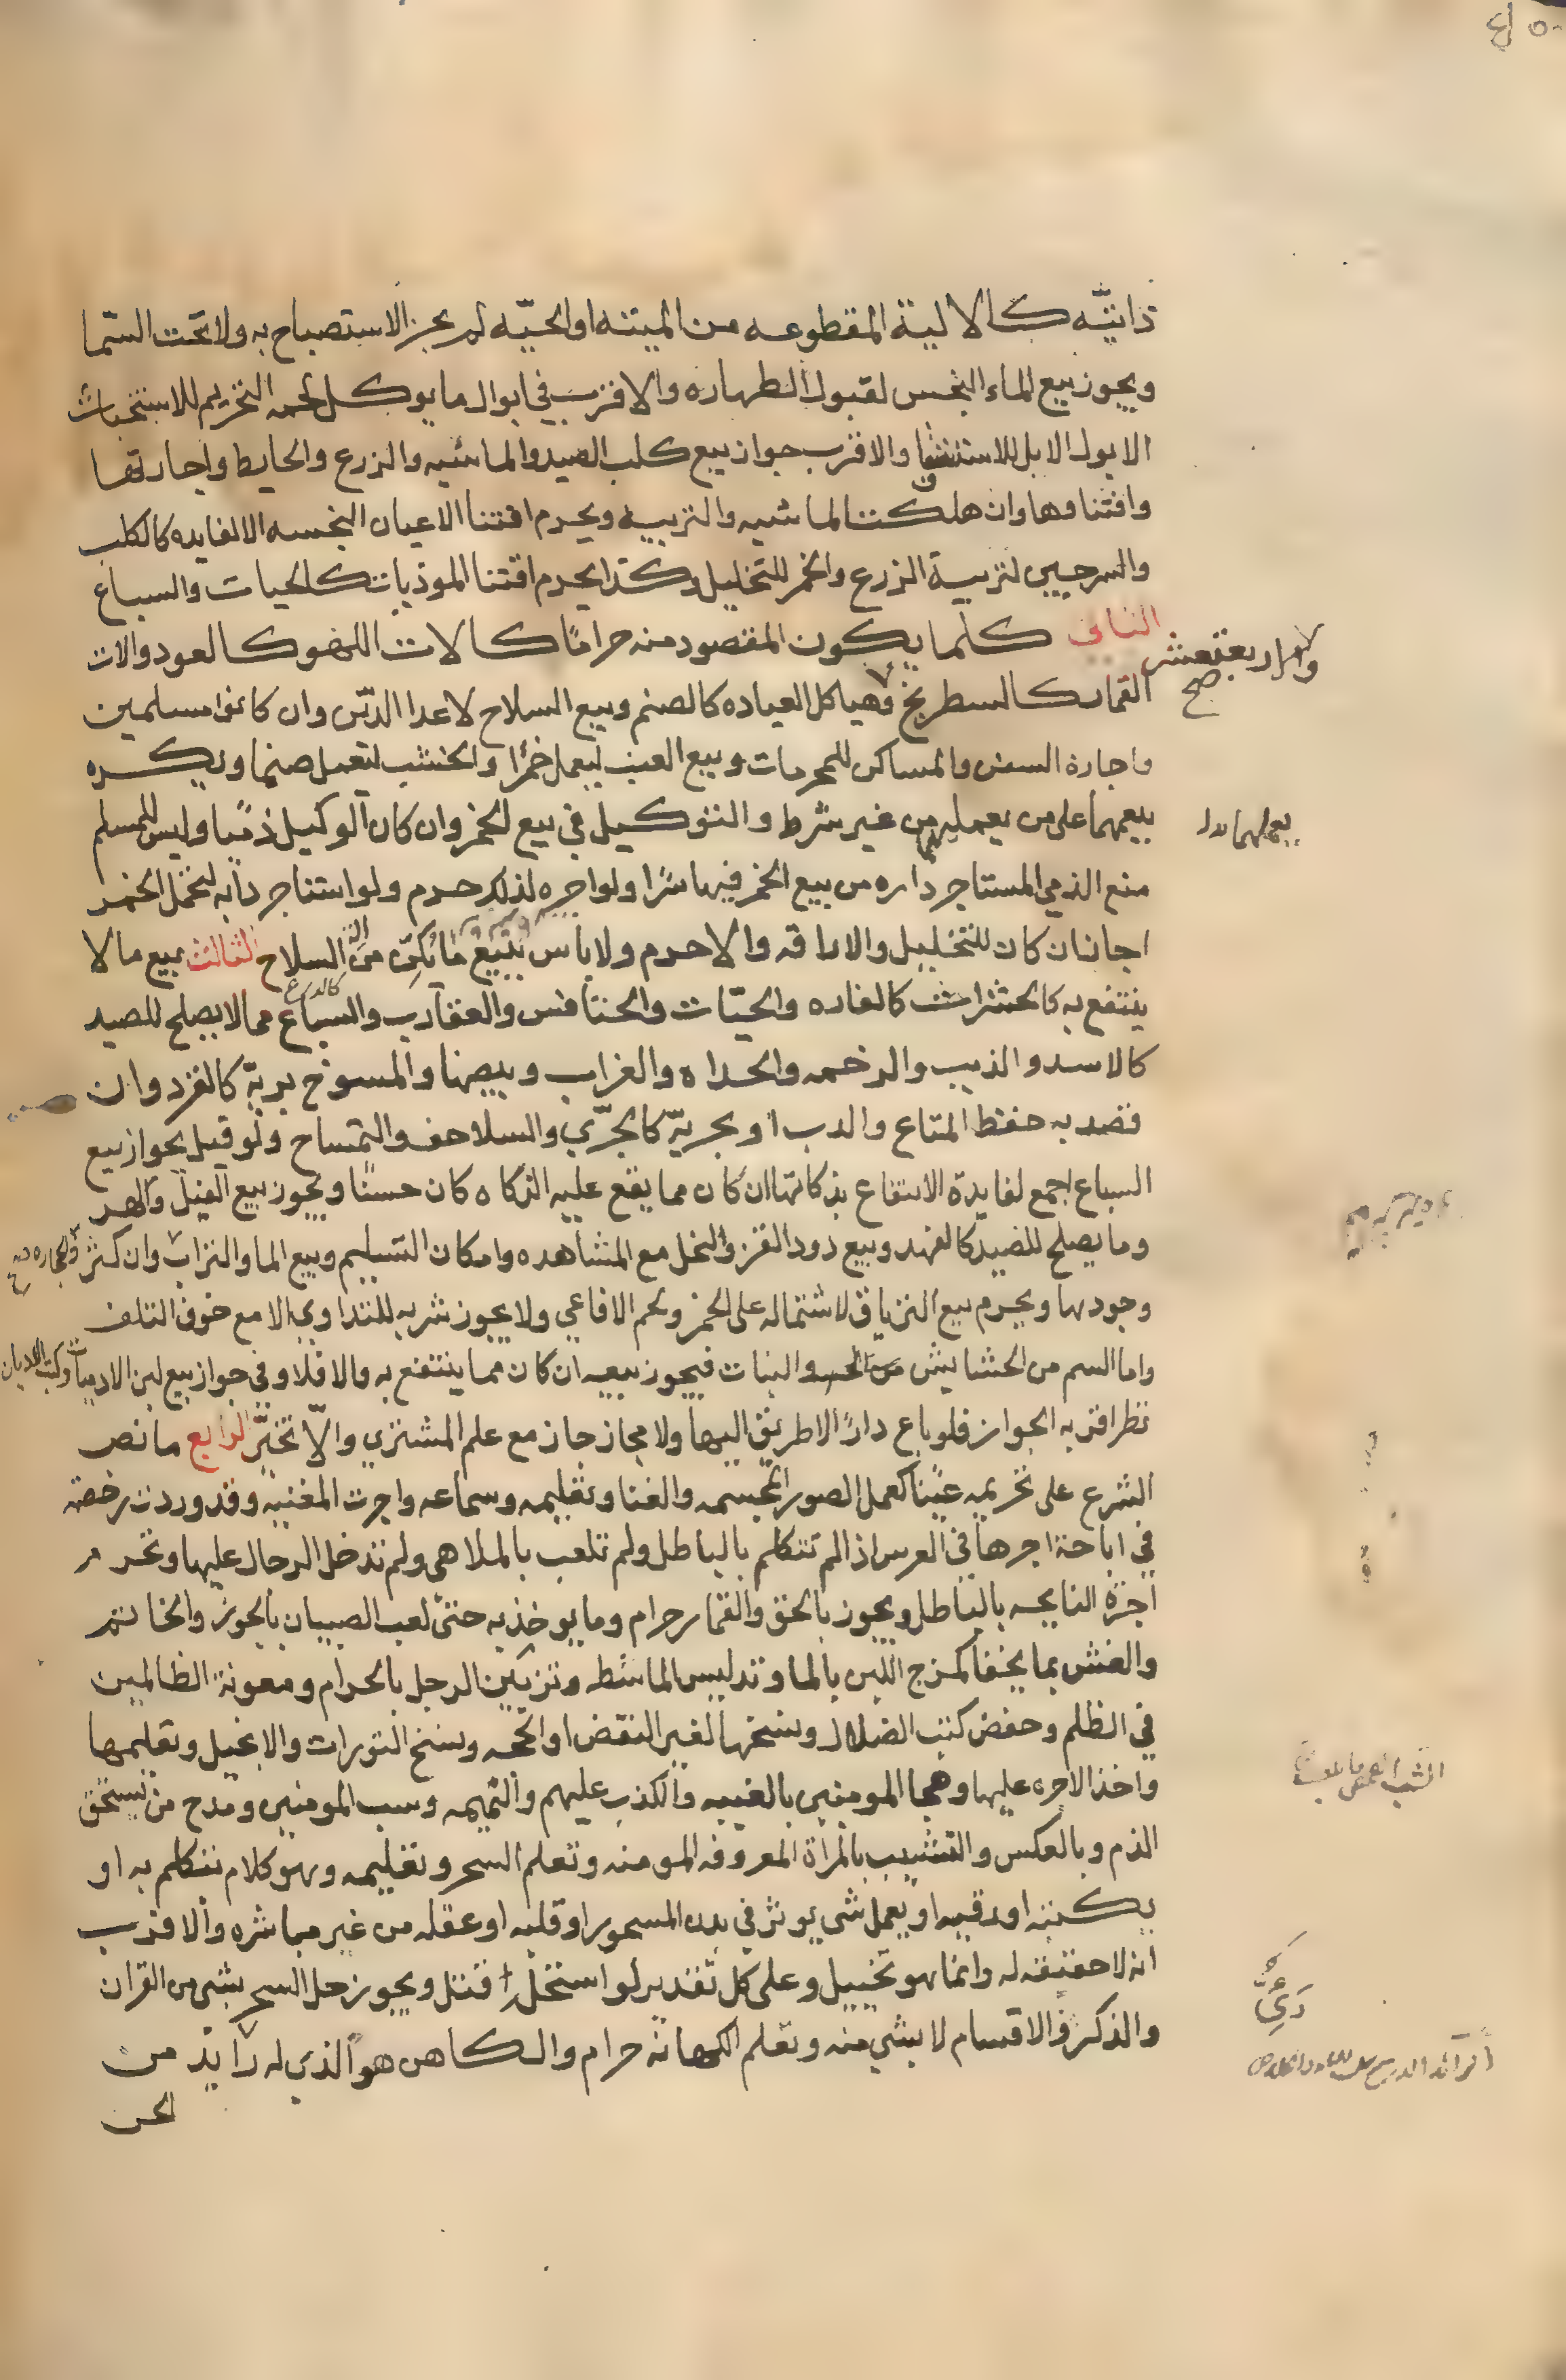 ذاتيّه كالالية المقطوعه من الميتة او الحيّه لم يجز الاستصباح به ولا تحت السّما
ويجوز بيع الماء النجس لقبول الطهاره والاقرب في ابوال ما يوكل لحمه التحريم للاستخباث
الا بول الابل للاستشفا والاقرب جواز بيع كلب الصيد والماشيه والزرع والحايط واجارتها
واقتناوها وان هلكت الماشيه والتربية ويحرم اقتنا الاعيان النجسه الا لفايده كالكلب
والسرجين لتربية الزرع والخمر للتخليل وكذا يحرم اقتنا الموذيات كالحيات والسباع
الثاني كلما يكون المقصود منه حرامًا كالات اللهو كالعود والات
القمار كالسطرنج وهياكل العباده كالصنم وبيع السلاح لاعدا الدّين وان كانوا مسلمين
صح
واجارة السفن والمساكن للمحرمات وبيع العنب ليعمل خمرًا والخشب ليعمل صنما ويكره
بيعهما على من يعمل من غير شرط والتوكيل في بيع الخمر وان كان الوكيل ذميًا وليس للمسلم
يعملهما
منع الذمي المستاجر داره من بيع الخمر فيها سرًا ولو اجره لذلك حرم ولو استاجر دابه لحمل الخمر
اجاز ان كان للتخليل والاراقه والا حرم ولا باس ببيع ما يكن من السلاح الثالث بيع ما لا
كالدرع
ينتفع به كالحشرات كالفاره والحيّات والخنافس والعقارب والسباع مما لا يصلح للصيد
كالاسد والذيب والرخمه والحداه والغراب وبيضها والمسوخ بريّه كالقرد وان
قصد به حفظ المتاع والدب او بحريّة كالجرّي والسلاحف والتمساح ولو قيل بجواز بيع
السباع اجمع لفايدة الانتفاع بذكاتها ان كان مما يقع عليه الذكاه كان حسنًا ويجوز بيع الفيل والهر
وما يصلح للصيد كالفهد وبيع دود القز والنحل مع المشاهده وامكان التسليم وبيع الما والتراب والحجاره وان كثر
وجودها ويحرم بيع الترياق لاشتماله على الخمر ولحم الافاعي ولا يجوز شربه للتداوي الا مع خوف التلف
واما السم من الحشايش والنبات فيجوز بيعه ان كان مما ينتفع به والا فلا وفي جواز بيع لبن الادميات
نظر اقربه الجواز فلو باع دارًا لا طريق اليها ولا مجاز جاز مع علم المشتري والّا تخيّر الرابع ما نص
الشرع على تحريمه عينًا كعمل الصور المجسمه والغنا وتعليمه وسماعه واجرت المغنيه وقد وردت رخصه
في اباحة اجرها في العرس اذا لم تتكلم بالباطل ولم تلعب بالملاهي ولم تدخل الرجال عليها وتحرم
اجرة النايحه بالباطل ويجوز بالحق والقمار حرام وما يوخذ به حتى لعب الصبيان بالجوز والخاتم
والغش بما يخفا كمزج اللبن بالما وتدليس الماشطه وتزيين الرجل بالحرام ومعونة الظالمين
في الظلم وحفض كتب الضلال ونسخها لغير النقض او الحجه ونسخ التورات والانجيل وتعليمها
واخذ الاجره عليها وهجا المومنين بالغيبه والكذب عليهم والنميمه وسب المومنين ومدح من يستحق
الذم وبالعكس والتشبيب بالمراة المعروفه المومنه وتعلم السحر وتعليمه وهو كلام يتكلم به او
يكتبه او رقيه او يعمل شي يوثر في بدن المسحور او قلبه او عقله من غير مباشره والاقرب
انه لا حقيقه له وانما هو تخييل وعلى كل تقدير لو استحله قتل ويجوز حل السحر بشي من القران
والذكر والاقسام لا بشي منه وتعلم الكهانه حرام والكاهن هو الذي له رايد من
الجن